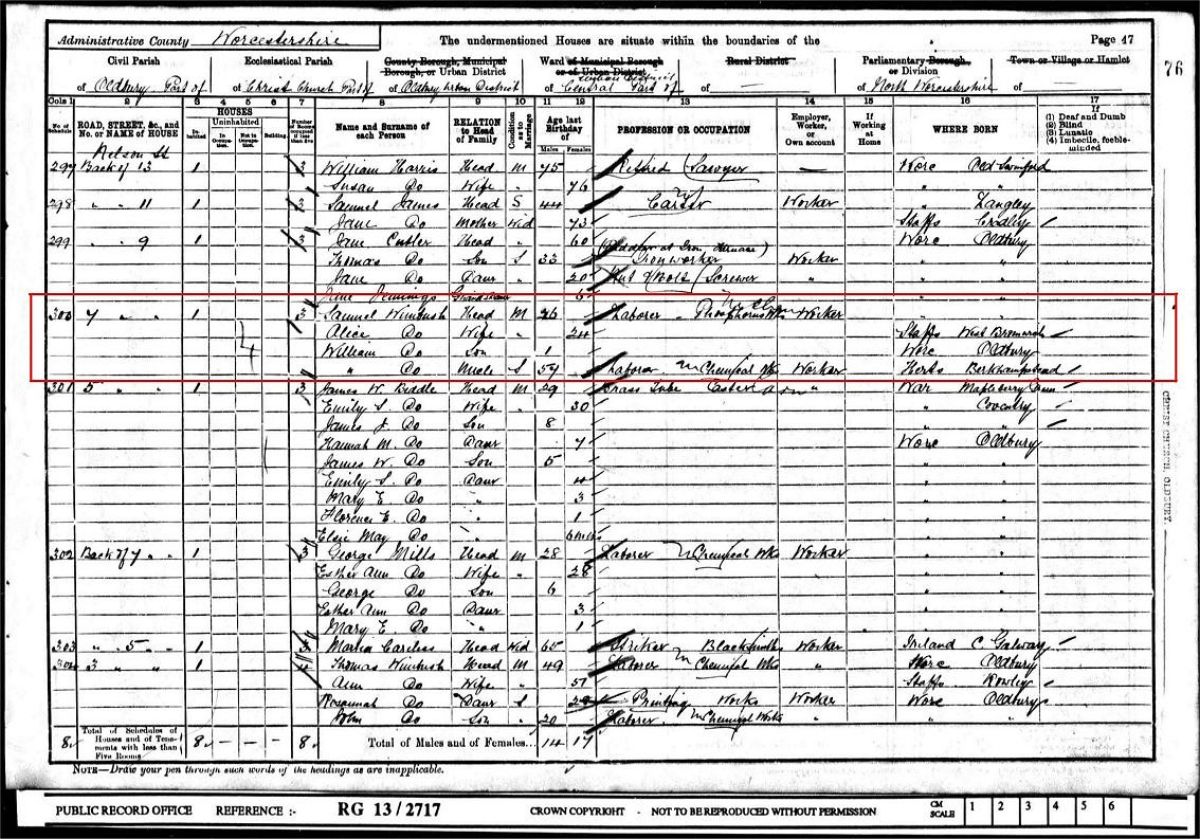 Administrative County Worcestershire The undermentioned Houses are situate within the boundaries of the Page 47
76
Civil Parish Ecclesiastical Parish County Borough, Municipal Borough, or Urban District Ward of Municipal Borough or of Urban District Rural District Parliamentary Borough, or Division Town or Village or Hamlet
of Oldbury Part of of Christ Church Part of of Oldbury Urban District of Central Part of of — of North Worcestershire of —
Cols 1 2 3 4 5 6 7 8 9 10 11 12 13 14 15 16 17
No. of Schedule ROAD, STREET, &c., and No. or NAME of HOUSE HOUSES Inhabited Uninhabited In Occupation. Not in Occupation. Building Name and Surname of each Person RELATION to Head of Family Condition as to Marriage Age last Birthday of Males Females PROFESSION OR OCCUPATION Employer, Worker, or Own account If Working at Home WHERE BORN If (1) Deaf and Dumb (2) Blind (3) Lunatic (4) Imbecile, feeble-minded
Nelson St
297 Back of 13 1 3 William Harris Head M 75 Retired Sawyer — Worc
Susan Do Wife " 76 " "
298 " " 11 1 3 Samuel James Head S 44 Carter Worker " Langley
Jane Do Mother Wid 73 Staffs Cradley
299 " " 9 1 3 Jane Cutler Head " 60 Worc Oldbury
Thomas Do Son S 33 Ironworker Worker " "
Jane Do Daur " 20 Nut & Bolt Screwer " " "
Jane Jennings Grandaur 6 " "
300 7 " " 1 3 Samuel Wimbush Head M 26 Laborer Phosphorus Wks Worker " "
Alice Do Wife " 24 Staffs West Bromwich
William Do Son 1 Worc Oldbury
" Do Uncle S 59 Laborer in Chemical Wks Worker Herts Berkhampstead
301 5 " " 1 3 James W. Biddle Head M 29 Brass Tube Caster " War
Emily S. Do Wife " 30 " Coventry
James J. Do Son 8 " "
Hannah M. Do Daur 7 Worc Oldbury
James W. Do Son 5 " "
Emily S. Do Daur 4 " "
Mary E. Do " 3 " "
Florence E. Do " 1 " "
Elsie May Do " 6 mths " "
302 Back of 7 " " 1 3 George Mills Head M 28 Laborer in Chemical Wks Worker " "
Esther Ann Do Wife " 28 " "
George Do Son 6 " "
Esther Ann Do Daur 3 " "
Mary E. Do " 1 " "
303 " 5 " " 1 3 Head Wid 65 Striker Blacksmith Worker Ireland C. Galway
304 3 " " 1 Thomas Wimbush Head M 49 Laborer in Chemical Wks " Worc Oldbury
Ann Do Wife " 51 Staffs Rowley
Rosannah Do Daur S 24 Printing Works Worker Worc Oldbury
John Do Son " 20 Laborer in Chemical Works " " "
8 Total of Schedules of Houses and of Tenements with less than Five Rooms 8 — — — 8 Total of Males and of Females... 14 17
NOTE—Draw your pen through such words of the headings as are inapplicable.
CHRIST CHURCH, OLDBURY.
PUBLIC RECORD OFFICE REFERENCE :- RG 13/2717 CROWN COPYRIGHT - NOT TO BE REPRODUCED WITHOUT PERMISSION CM SCALE 1 2 3 4 5 6